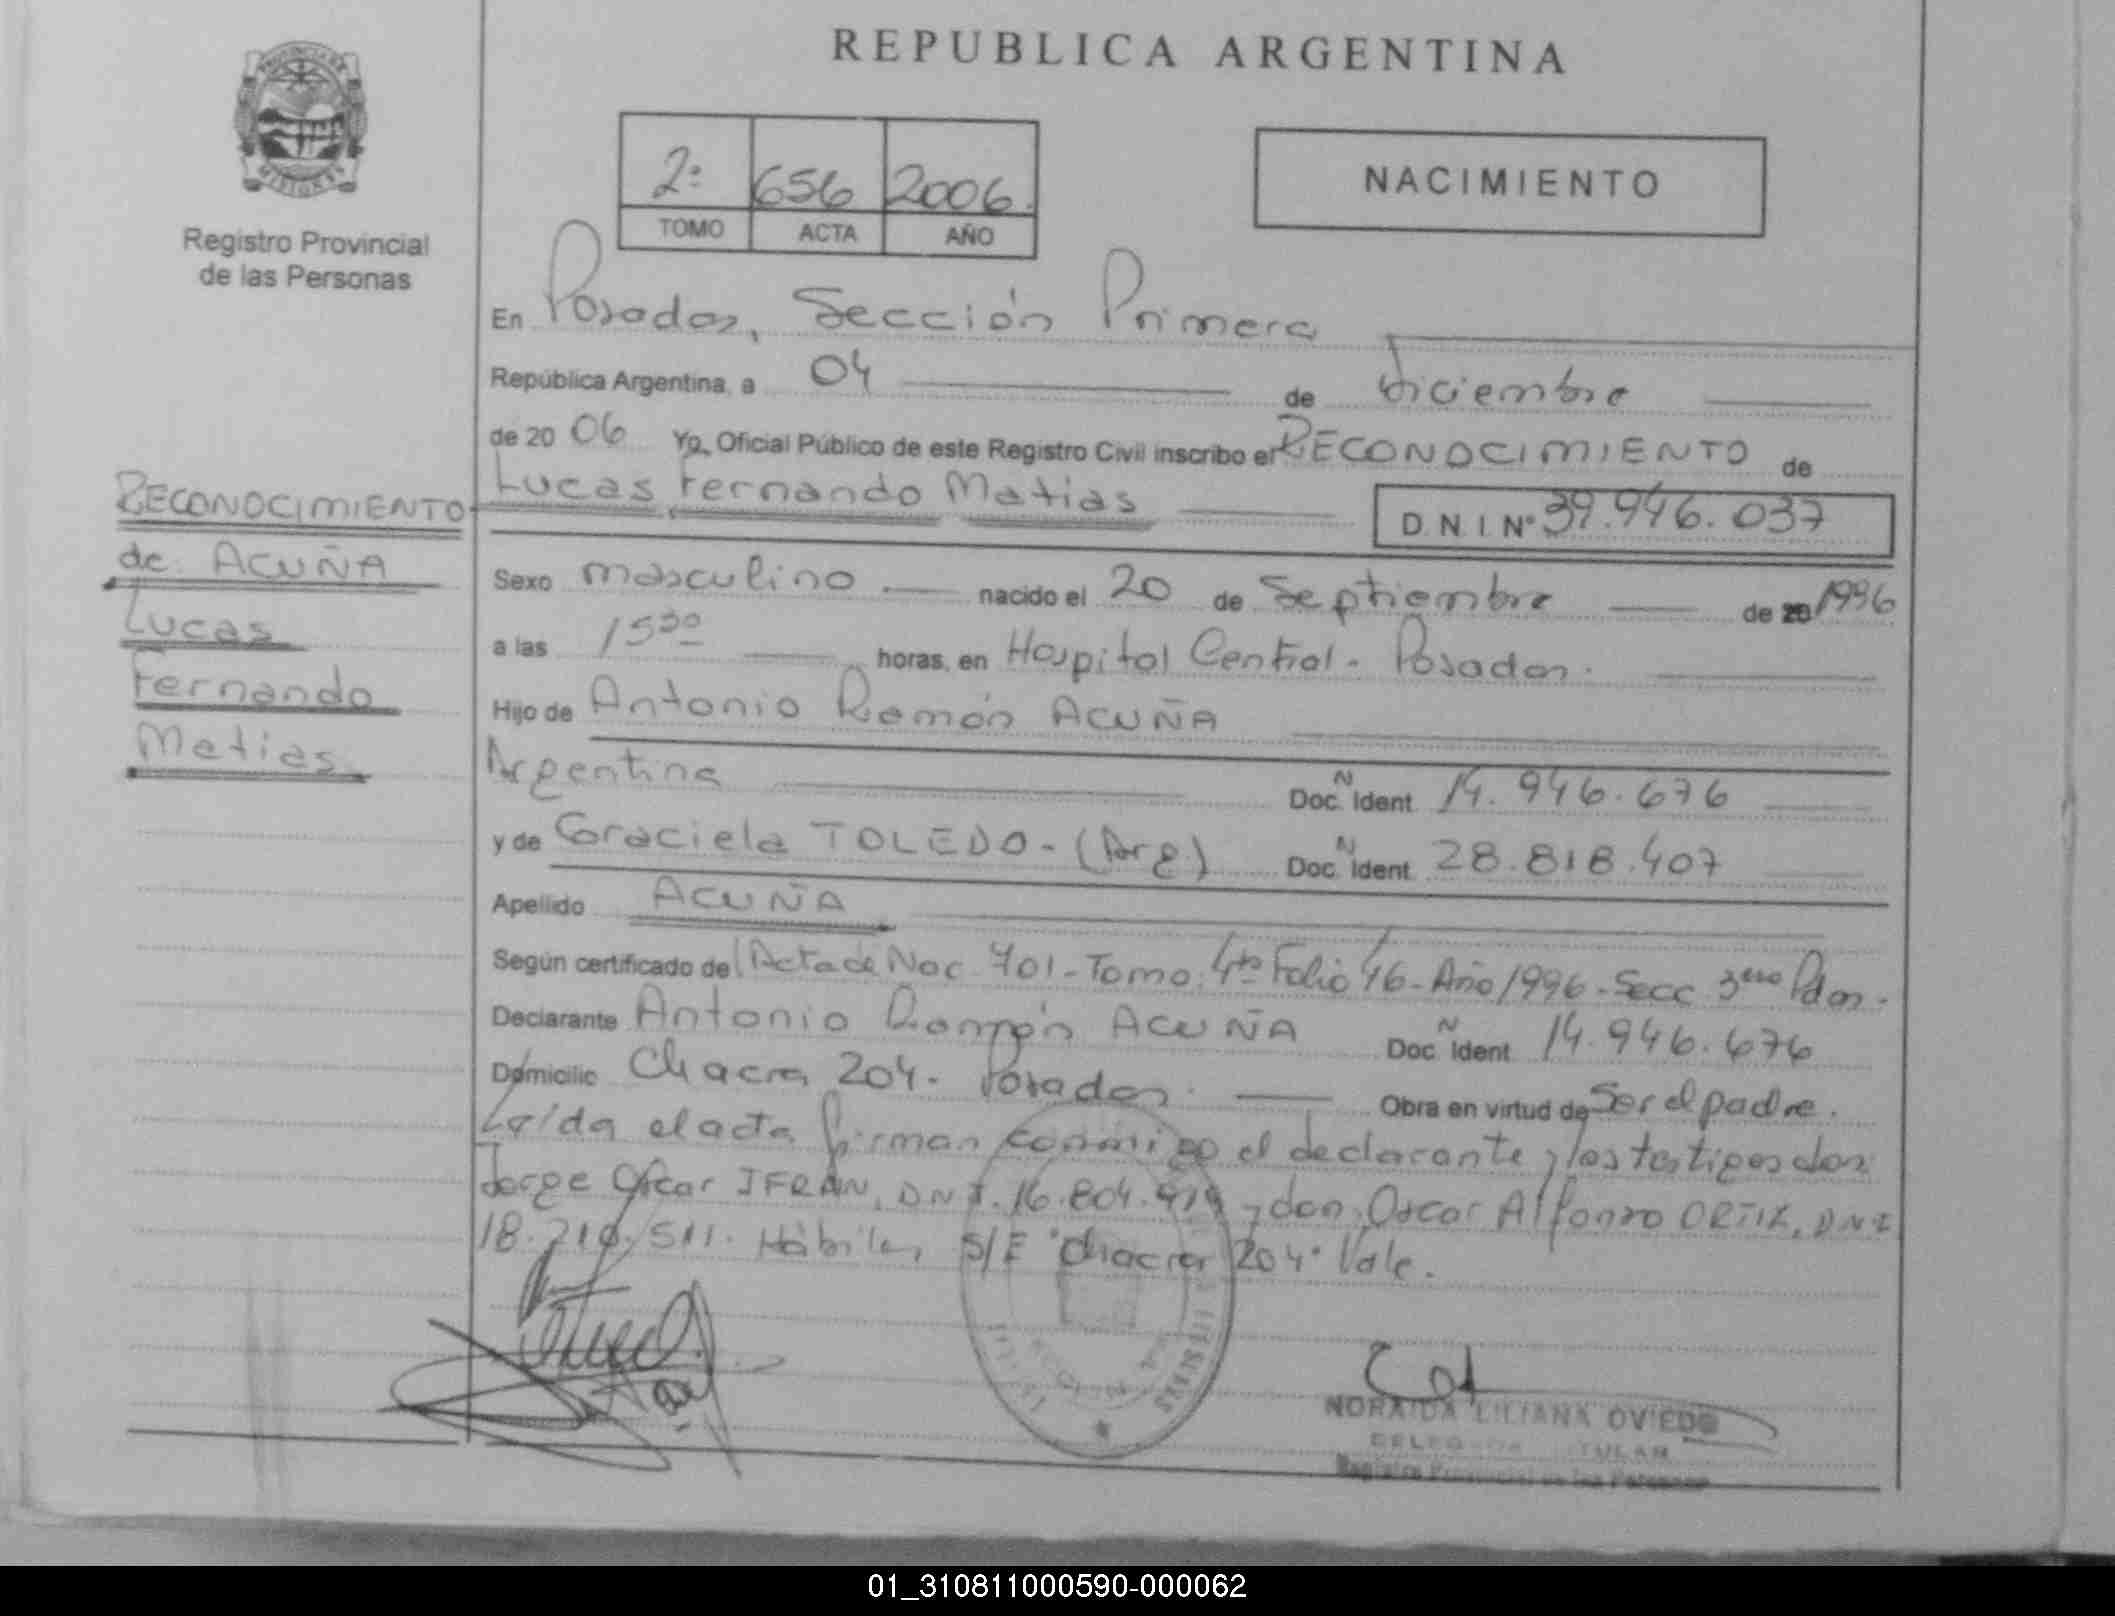 REPUBLICA ARGENTINA
PROVINCIA DE
MISIONES
Registro Provincial
de las Personas
2º 656 2006.
TOMO ACTA AÑO
NACIMIENTO
En Posadas, Sección Primera
República Argentina, a 04 de diciembre
de 20 06 Yo, Oficial Público de este Registro Civil inscribo el RECONOCIMIENTO de
Lucas Fernando Matias D.N.I.Nº 39.946.037
RECONOCIMIENTO
de ACUÑA
Lucas
Fernando
Matias
Sexo masculino nacido el 20 de Septiembre de 20 1996
a las 1530 horas, en Hospital Central - Posadas.
Hijo de Antonio Ramón ACUÑA
Argentina Doc. N Ident. 14.946.676
y de Graciela TOLEDO - (Arg) Doc. N Ident. 28.818.407
Apellido ACUÑA
Según certificado del Acta de Nac. 701 - Tomo: 4to Folio 46 - Año 1996 - Secc 3era Pdas.
Declarante Antonio Ramón ACUÑA Doc. N Ident. 14.946.676
Domicilio Chacra 204. Posadas. Obra en virtud de Ser el padre.
Leída el acta firman conmigo el declarante y los testigos don
Jorge Oscar IFRAN, DNI. 16.804.919 y don, Oscar Alfonzo ORTIZ, DNI
18.210.511. Hábiles, S/E "Chacra 204" Vale.
NORAIDA LILIANA OVIEDO
DELEGADA TITULAR
Registro Provincial de las Personas
01_310811000590-000062